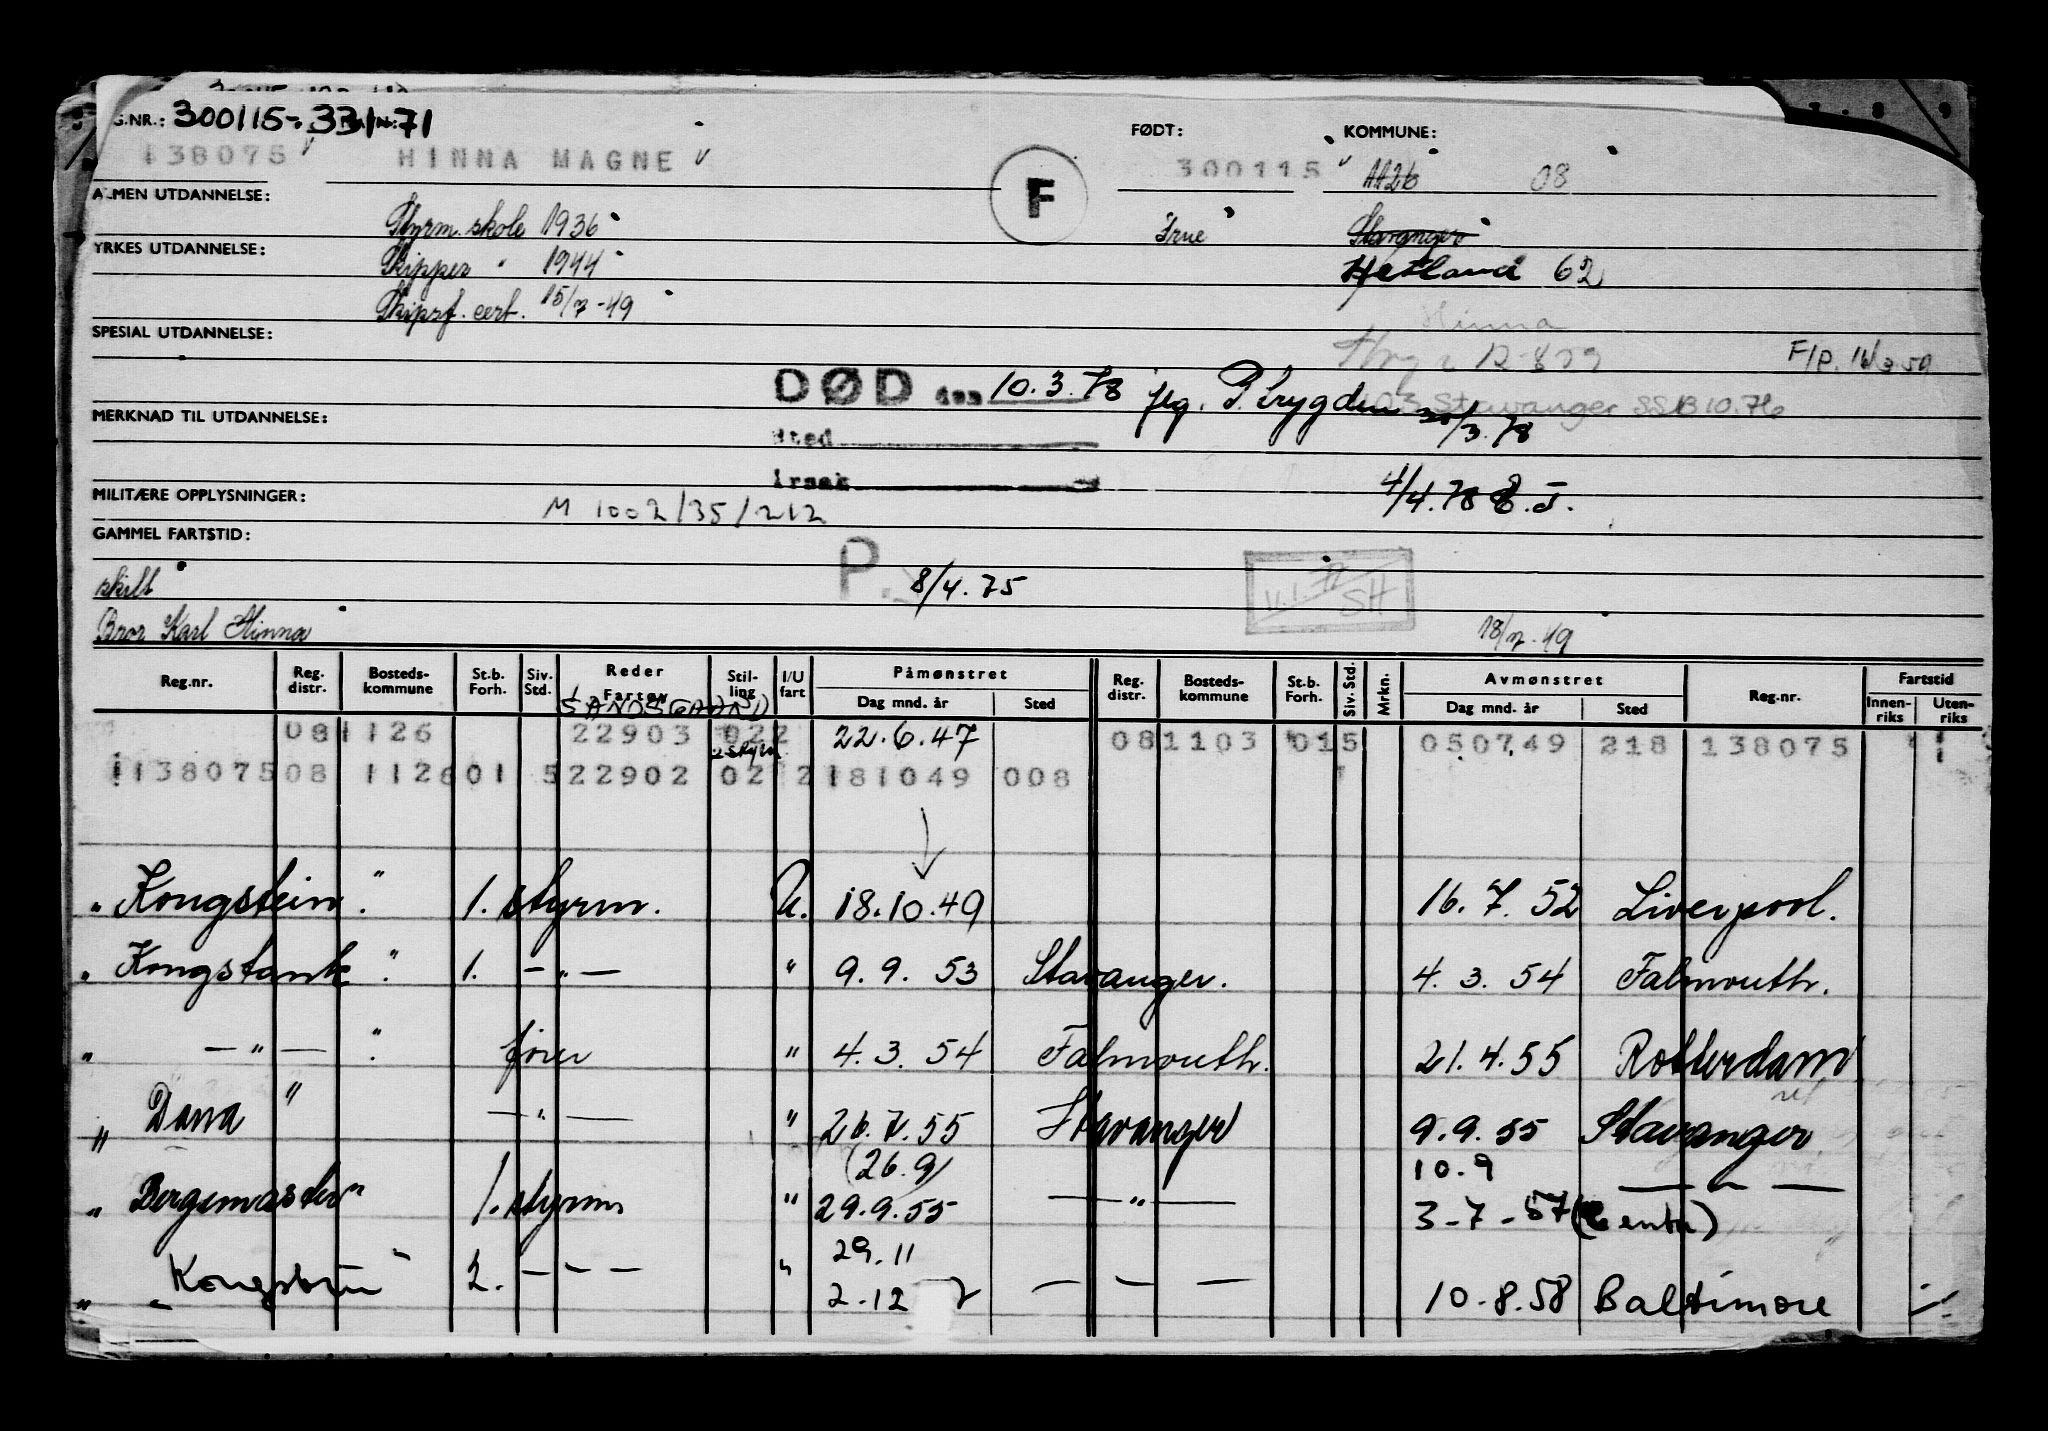 G.NR.: 300115-33171 FØDT: KOMMUNE:
138075 HINNA MAGNE F 300115 AA26 08
ALMEN UTDANNELSE:
Styrm. skole 1936 Stavanger
YRKES UTDANNELSE:
Skipper " 1944 Hetland 62
Skipsf. cert. 15/7-49
Hinna
SPESIAL UTDANNELSE: F/P. 16/3 59
DØD den 10.3.78 jfg. P. Trygden 30/3.78
Stavanger SSB 10.76
MERKNAD TIL UTDANNELSE:
Sted
Årsak 4/4.78
MILITÆRE OPPLYSNINGER: M 1002/35/212
GAMMEL FARTSTID:
P. 8/4.75 SH
skilt
Bror Karl Hinna 18/7-49
Reg.nr. Reg. distr. Bosteds- kommune St.b. Forh. Siv. Std. Reder Fartøy Stil- ling I/U fart Påmønstret Dag mnd. år Sted Reg. distr. Bosteds- kommune St.b. Forh. Siv. Std. Mrkn. Avmønstret Dag mnd. år Sted Reg.nr. Fartstid Innen- riks Uten- riks
SANDSGAARD
081126 22903 022 22.6.47 081103 015 050749 218 138075
2 styrm
138075 08 112601 522902 02 2 181049 008
" Kongstein " 1. styrm. U. 18.10.49 16.7.52 Liverpool.
" Kongstank " 1. -"- " 9.9.53 Stavanger. 4.3.54 Falmouth.
" -"- " fører " 4.3.54 Falmouth. 21.4.55 Rotterdam
" Dana " -"- " 26.7.55 Stavanger 9.9.55 Stavanger
(26.9) 10.9
" Bergemaster " 1. styrm " 29.9.55 -"- 3-7-57
29.11
" 2. - - - " 2-12 - - - 10-8.58 Baltimore